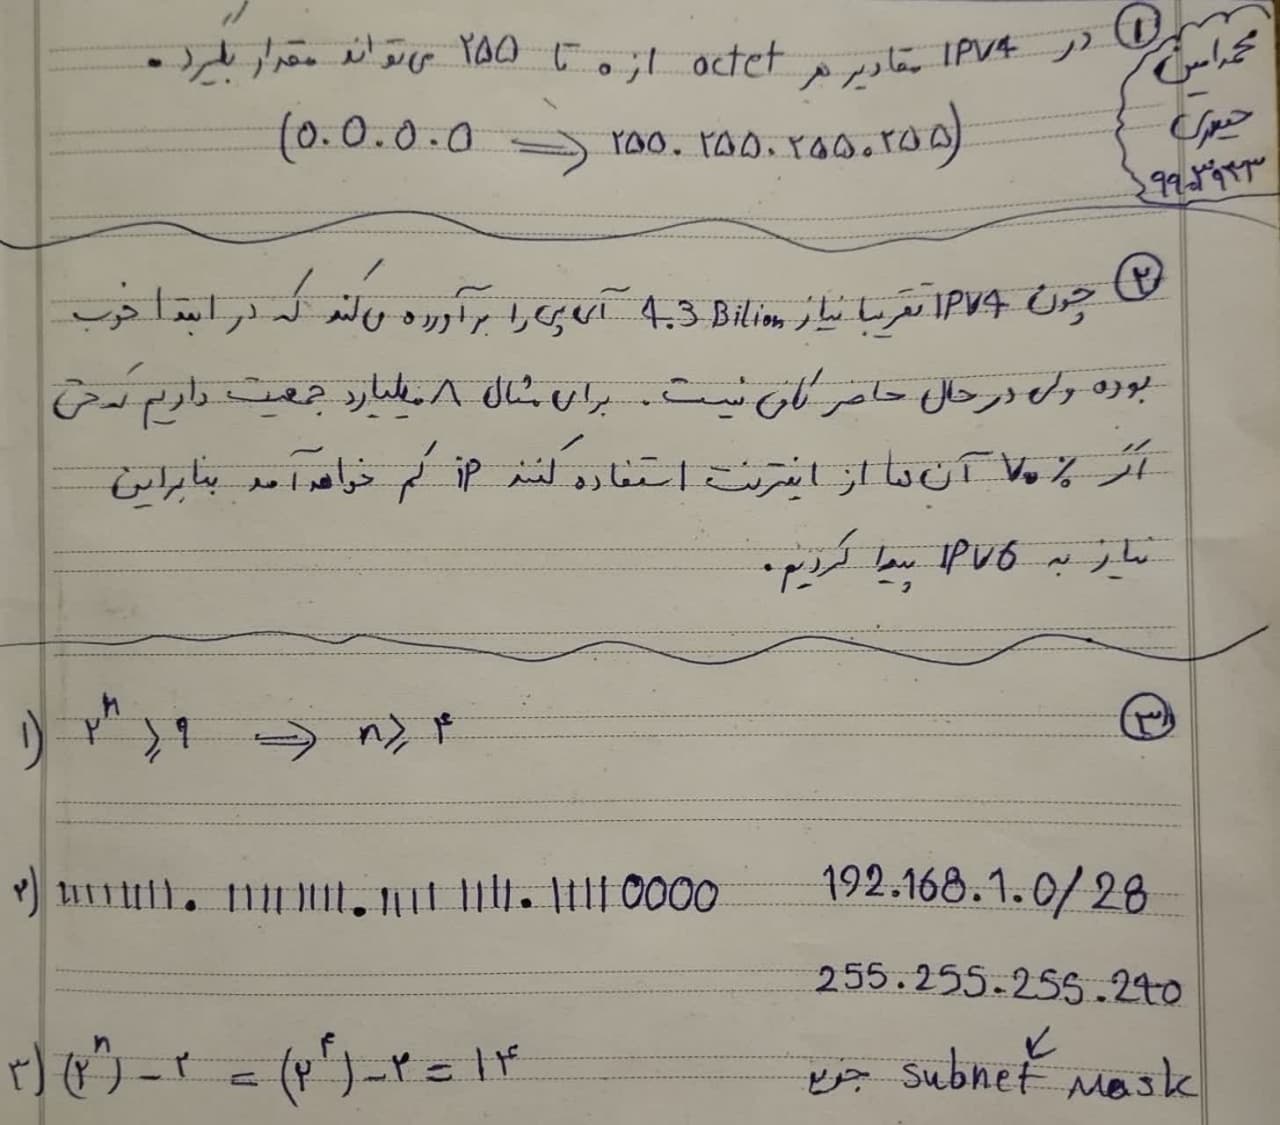 محمدامین
حیدری
① در IPV4 مقادیر هر octet از ۰ تا ۲۵۵ می‌تواند مقدار بگیرد.
(0.0.0.0 ⟹ ۲۵۵.۲۵۵.۲۵۵.۲۵۵)
② چون IPV4 تقریبا نیاز 4.3 Bilion آی پی را برآورده می‌کند که در ابتدا خوب
بوده ولی در حال حاضر کافی نیست. برای مثال ۸ میلیارد جمعیت داریم که حتی
اگر ۷۰٪ آن ها از اینترنت استفاده کنند ip کم خواهد آمد بنابراین
نیاز به IPV6 پیدا کردیم.
③
۱) ۲ⁿ ⩾ ۹ ⟹ n ⩾ ۴
۲) 11111111.11111111.11111111.11110000 192.168.1.0/28
255.255.255.240
۳) (۲ⁿ) - ۲ = (۲⁴) - ۲ = ۱۴ subnet Mask جدید